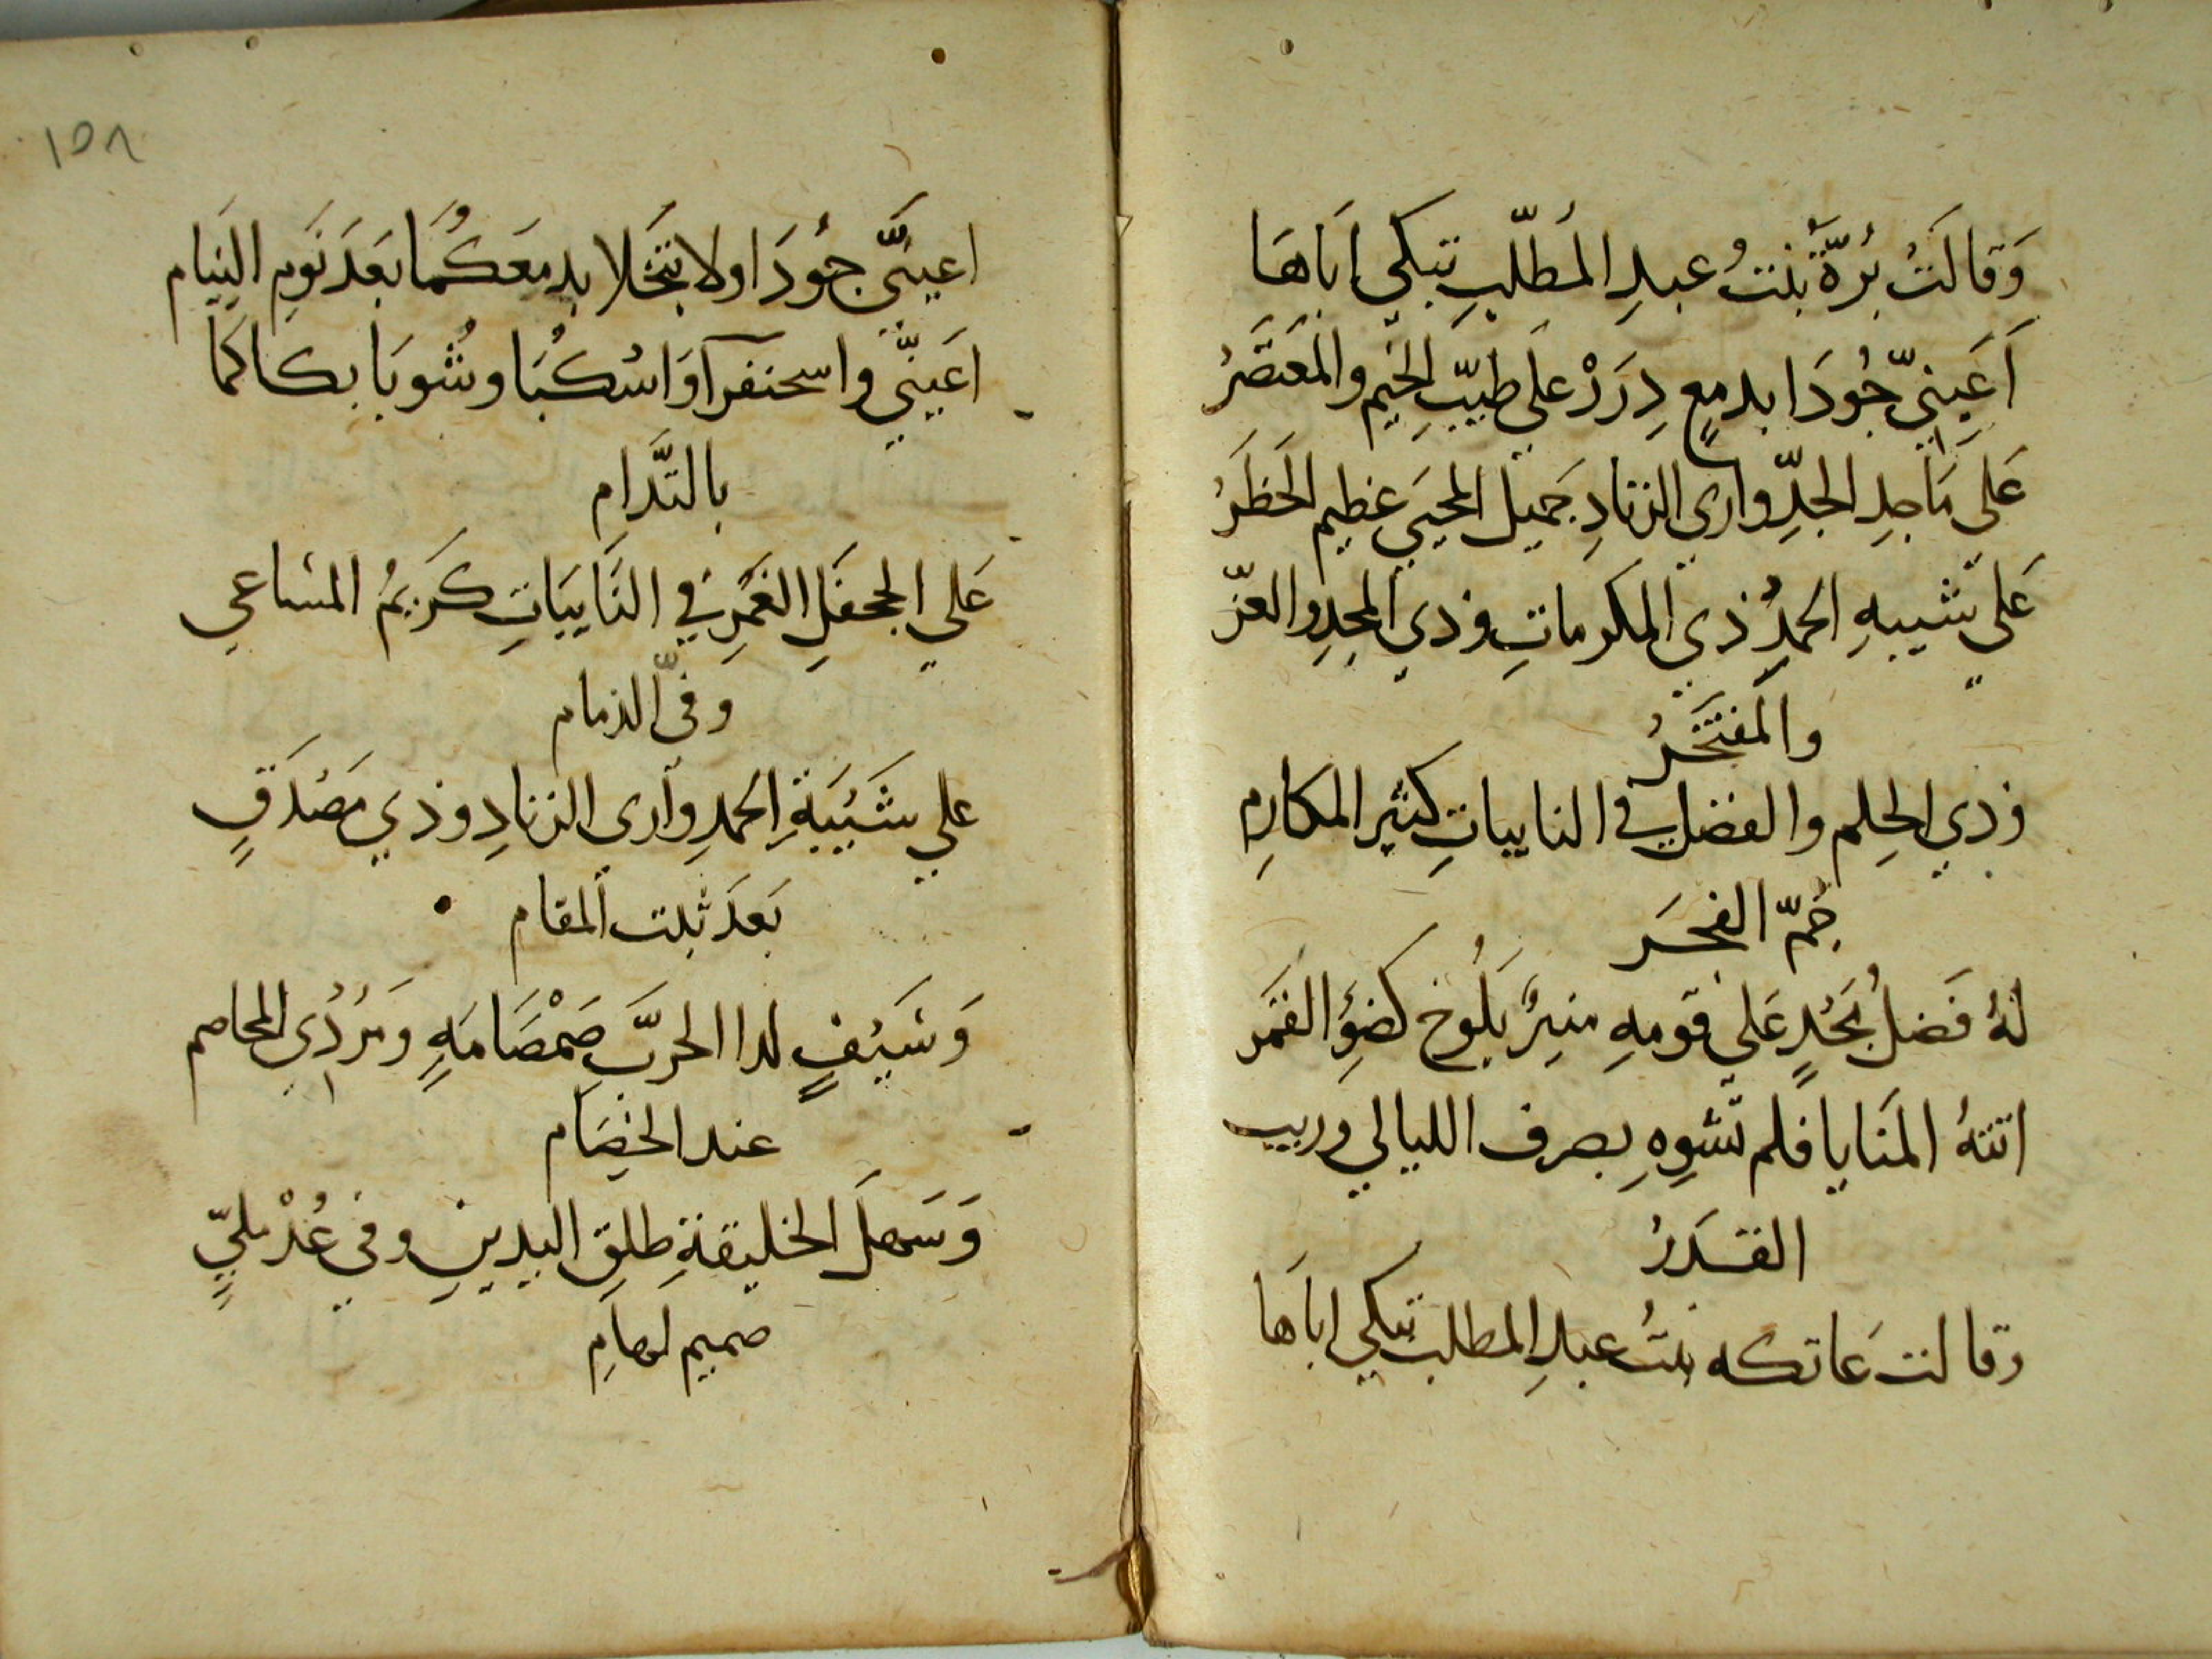 وَقَالَتْ بُرَّةُ بْنتُ عبدِ المُطّلبِ تبكي اباهَا
اَعَينيّ جُودَا بدمعٍ دِرَرْ علي طيّبِ الخيم والمعتَصَرُ
عَلي مَاجِدِ الجدِّ واري الزنادِ جَميل المحيي عظيم الخَطَرُ
عَلي شيبهِ الحمدِ ذي المكرماتِ وذي المجدِ والعزّ
والمفتَخَرُ
وذي الحِلم والفضل في النايباتِ كثير المكارِم
جُمّ الفجَر
لهُ فَضلُ مجْدٍ عَلي قومهِ منيرٌ يَلُوح كضوَءِ القمَر
اتتهُ المَنايا فلم تشوِهِ بصرف الليالي وريب
القدَرُ
وقالت عَاتكه بنتُ عبدِ المطلب تبكي اباَها
١٥٨
اعينَيَّ جُودَا ولا تبخَلا بدمعَكُمَا بَعَدَ نَومِ النِيَام
اعَينيَّ واسحنفرآ وَاسْكُبَا وشُوبَا بكاكمَا
بالتَّدَامِ
عَلي الجحفَلِ الغَمْرِ في النَّايبَاتِ كَريمُ المسَاعي
وفيّ الذمام
علي شَيْبَةِ الحمدِ وَآري الزنادِ وذي مَصْدَقٍ
بَعدَ ثبت المقام
وَسَيْفٍ لدا الحَرَّبِ صَمْصَامَةٍ وَمرْدُي المخاصم
عند الخِصَام
وَسَهلَ الخليقةِ طلقِ اليدينِ وفي عُدْملِيٍّ
صميم لهامِ